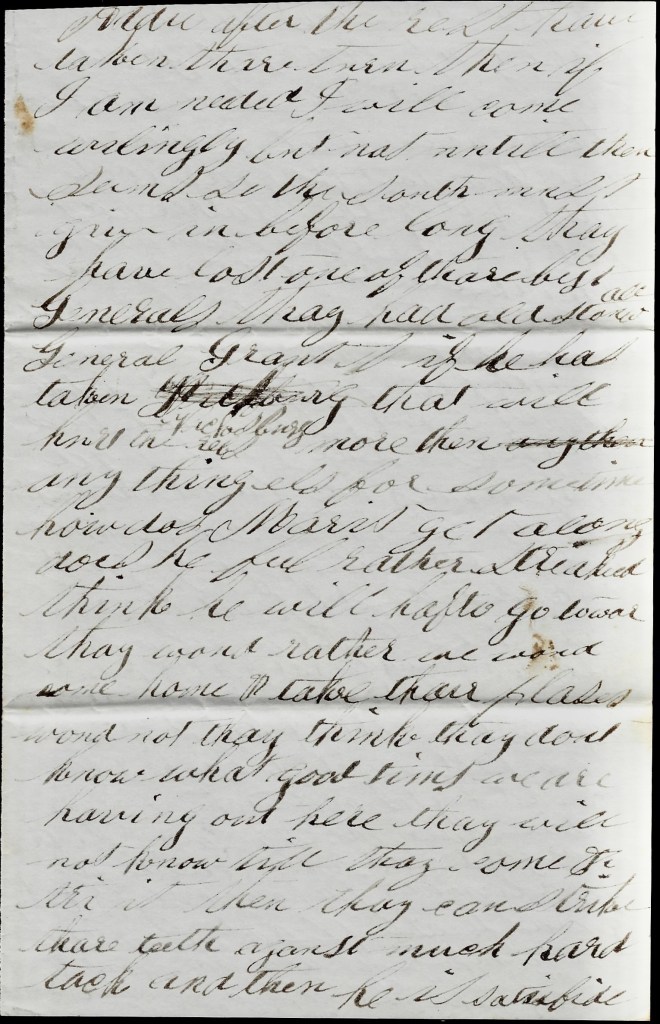 after the rest have
taken thare turn then if
I am needed I will come
wilingly but not untill then
seems so the South must
give in before long thay
have lost one of thare best
Generals thay had old stone all
General Grant if he has
taken that will
hurt the rebs more then any then
Vicksburg
any thing els for sometime
how dos Marist get along
does he feel rather streaked
think he will hafto go towar
thay wond rather we wond
come home & take thare plases
wond not thay think thay dont
know what good tims we are
having out here thay will
not know till thay come &
tri it then thay can strike
thare teeth against much hard
tack and then he is satisfide